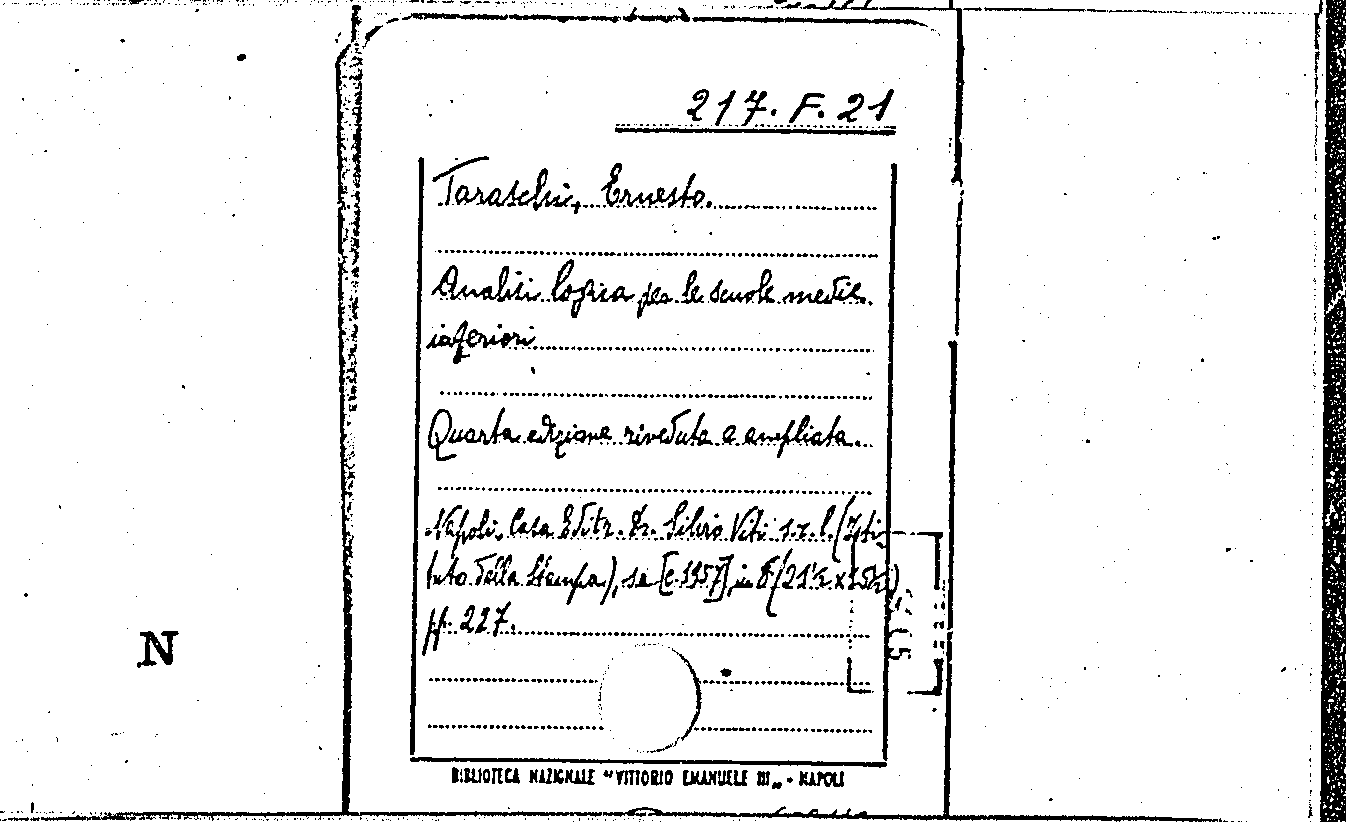 217. F. 21
Taraschi, Ernesto.
Analisi logica per le scuole medie
inferiori
Quarta edizione riveduta e ampliata.
Napoli, Casa Editr. Dr. Silvio Viti s.r.l. (Isti
tuto della Stampa), sa [c. 1957], in 8 (21½ x 15½)
pp. 227.
N
BIBLIOTECA NAZIONALE "VITTORIO EMANUELE III„ - NAPOLI